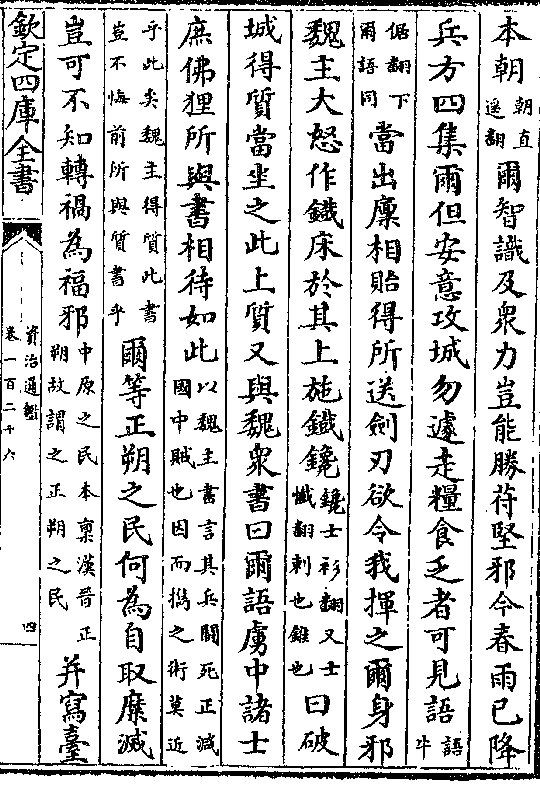 本朝朝直遥翻爾智識及衆力豈能勝苻堅邪今春雨已降
兵方四集爾但安意攻城勿遽走糧食乏者可見語語牛
倨翻下爾語同當出廩相貽得所送劍刃欲令我揮之爾身邪
魏主大怒作鐵床於其上施鐵鑱鑱士衫翻又士懴翻刺也錐也曰破
城得質當坐之此上質又與魏衆書曰爾語虜中諸士
庶佛狸所與書相待如此以魏主書言其兵鬬死正減國中賊也因而撝之術莫近
乎此矣魏主得質此書豈不悔前所與質書乎爾等正朔之民何為自取糜滅
豈可不知轉禍為福邪中原之民本稟漢晉正朔故謂之正朔之民并寫臺
欽定四庫全書
資治通鑑
卷一百二十六
四